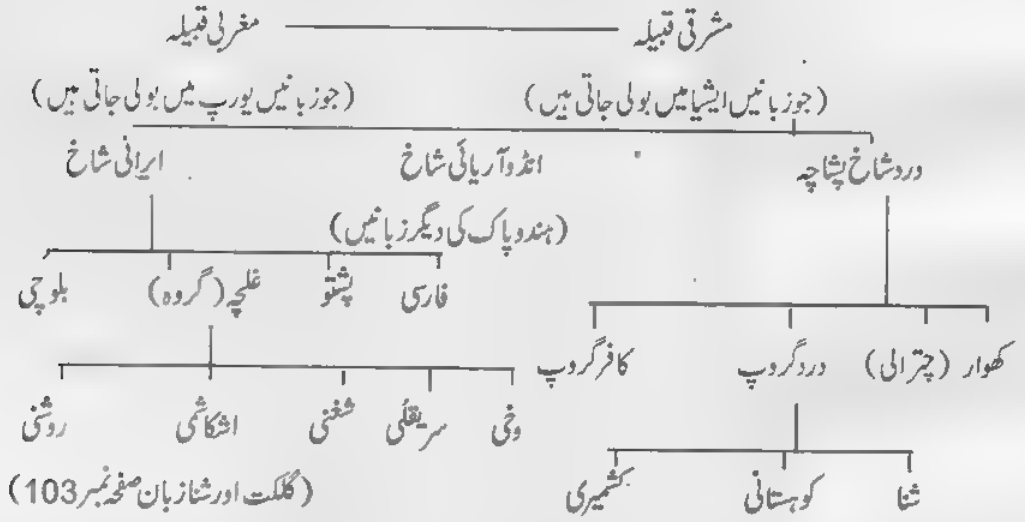 مشرقی قبیلہ مغربی قبیلہ
(جو زبانیں ایشیا میں بولی جاتی ہیں) (جو زبانیں یورپ میں بولی جاتی ہیں)
درد شاخ پشاچہ انڈو آریائی شاخ ایرانی شاخ
(ہندو پاک کی دیگر زبانیں)
فارسی پشتو غلچہ (گروہ) بلوچی
کھوار (چترالی) درد گروپ کافر گروپ
وخی سریقلی شغنی اشکاشمی روشنی
شنا کوہستانی کشمیری
(گلگت اور شنا زبان صفحہ نمبر 103)